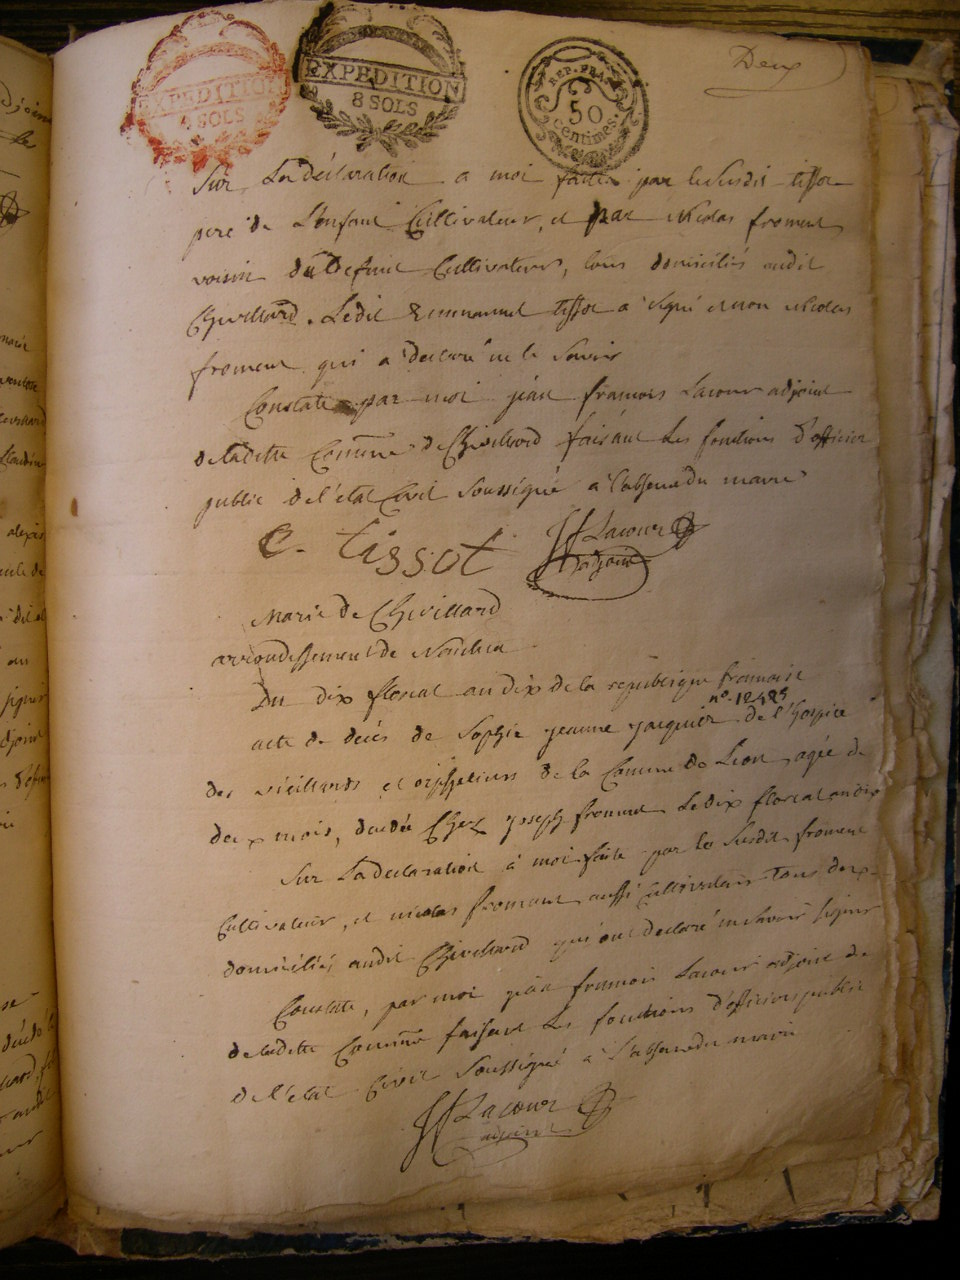 EXPEDITION
4 SOLS
EXPEDITION
8 SOLS
REP. FRA.
50
centimes.
Deux
Sur La déclaration a moi faite par le Susdit tissot
pere de L'enfant Cultivateur, et par Nicolas froment
voisin du defunt Cultivateur, tous domiciliés audit
Chevillard. Ledit Emmanuel tissot a signé et non Nicolas
froment qui a declaré ne le Savoir
Constaté par moi jean françois Lacour adjoint
de ladite Commune de Chevillard faisant Les fonctions d'officier
public de l'état Civil Soussigné a l'absence du maire
e. tissot
JF Lacour
adjoint
Marie de Chevillard
arrondissement de Nantua
Du dix floreal an dix de la republique francaise
n°. 12485
acte de décés de Sophie jeanne jacquier de l'hospice
des vieillards et orphelins de la Commune de Lion, agée de
deux mois, decedée Chez joseph froment Le dix floreal an dix
Sur La declaration à moi faite par le Susdit froment
Cultivateur, et nicolas froment aussi Cultivateur Tous deux
domiciliés audit Chevillard qui ont declaré ne Savoir signer
Constaté, par moi jean francois Lacour adjoint de
de ladite Commune faisant Les fonctions d'officier public
de l'état Civil Soussigné a L'absence du maire
JF Lacour
adjoint